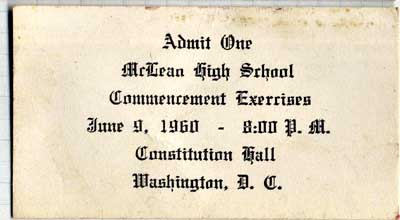 Admit One
McLean High School
Commencement Exercises
June 9, 1960 - 8:00 P. M.
Constitution Hall
Washington, D. C.